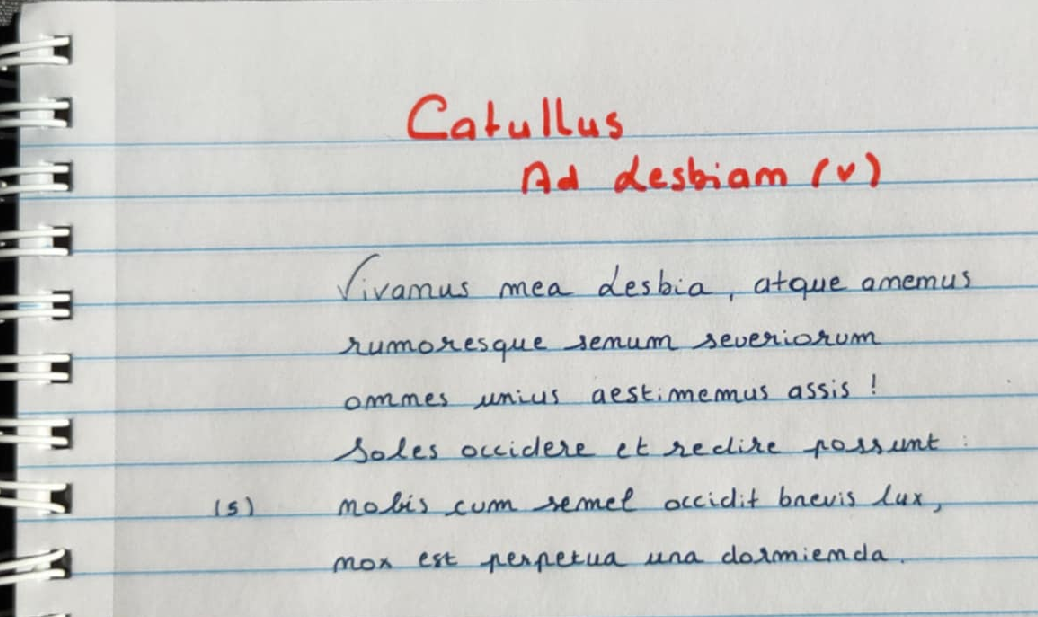 Catullus
Ad Lesbiam (v)
Vivamus mea Lesbia, atque amemus
rumoresque senum severiorum
omnes unius aestimemus assis !
Soles occidere et redire possunt :
(5) nobis cum semel occidit brevis lux,
nox est perpetua una dormienda.